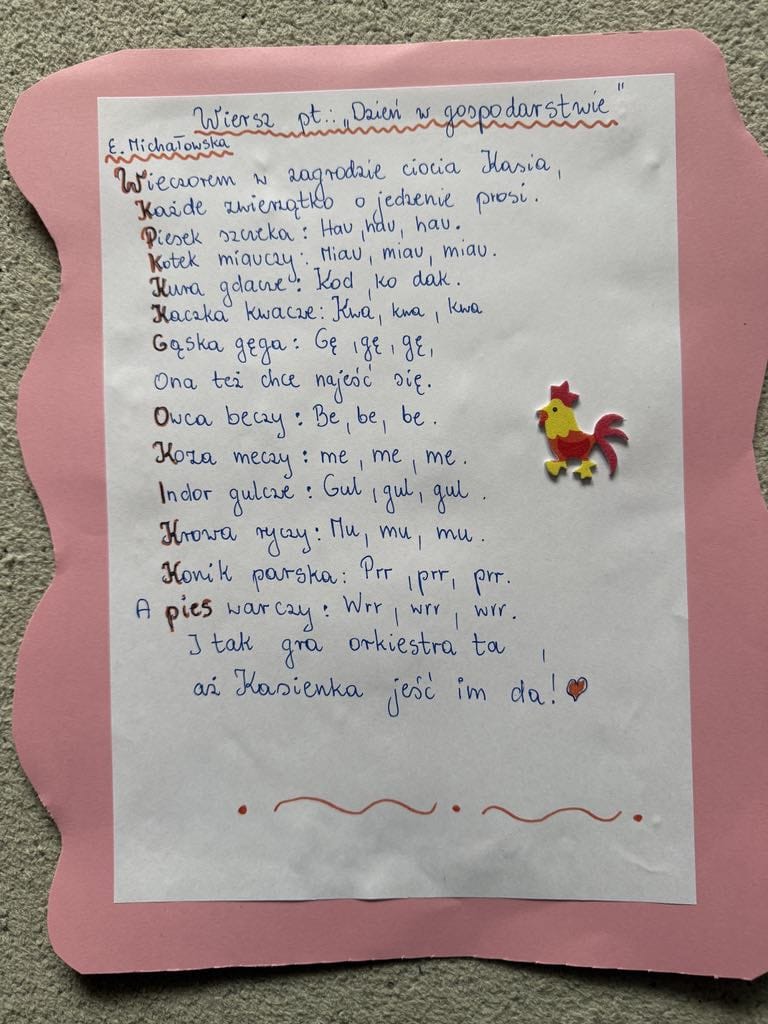 Wiersz pt.: „Dzień w gospodarstwie"
E. Michałowska
Wieczorem w zagrodzie ciocia Kasia,
Każde zwierzątko o jedzenie prosi.
Piesek szczeka: Hau, hau, hau.
Kotek miauczy: Miau, miau, miau.
Kura gdacze: Kod, ko dak.
Kaczka kwacze: Kwa, kwa, kwa
Gąska gęga: Gę, gę, gę,
Ona też chce najeść się.
Owca beczy: Be, be, be.
Koza meczy: me, me, me.
Indor gulcze: Gul, gul, gul.
Krowa ryczy: Mu, mu, mu.
Konik parska: Prr, prr, prr.
A pies warczy: Wrr, wrr, wrr.
I tak gra orkiestra ta,
aż Kasienka jeść im da!